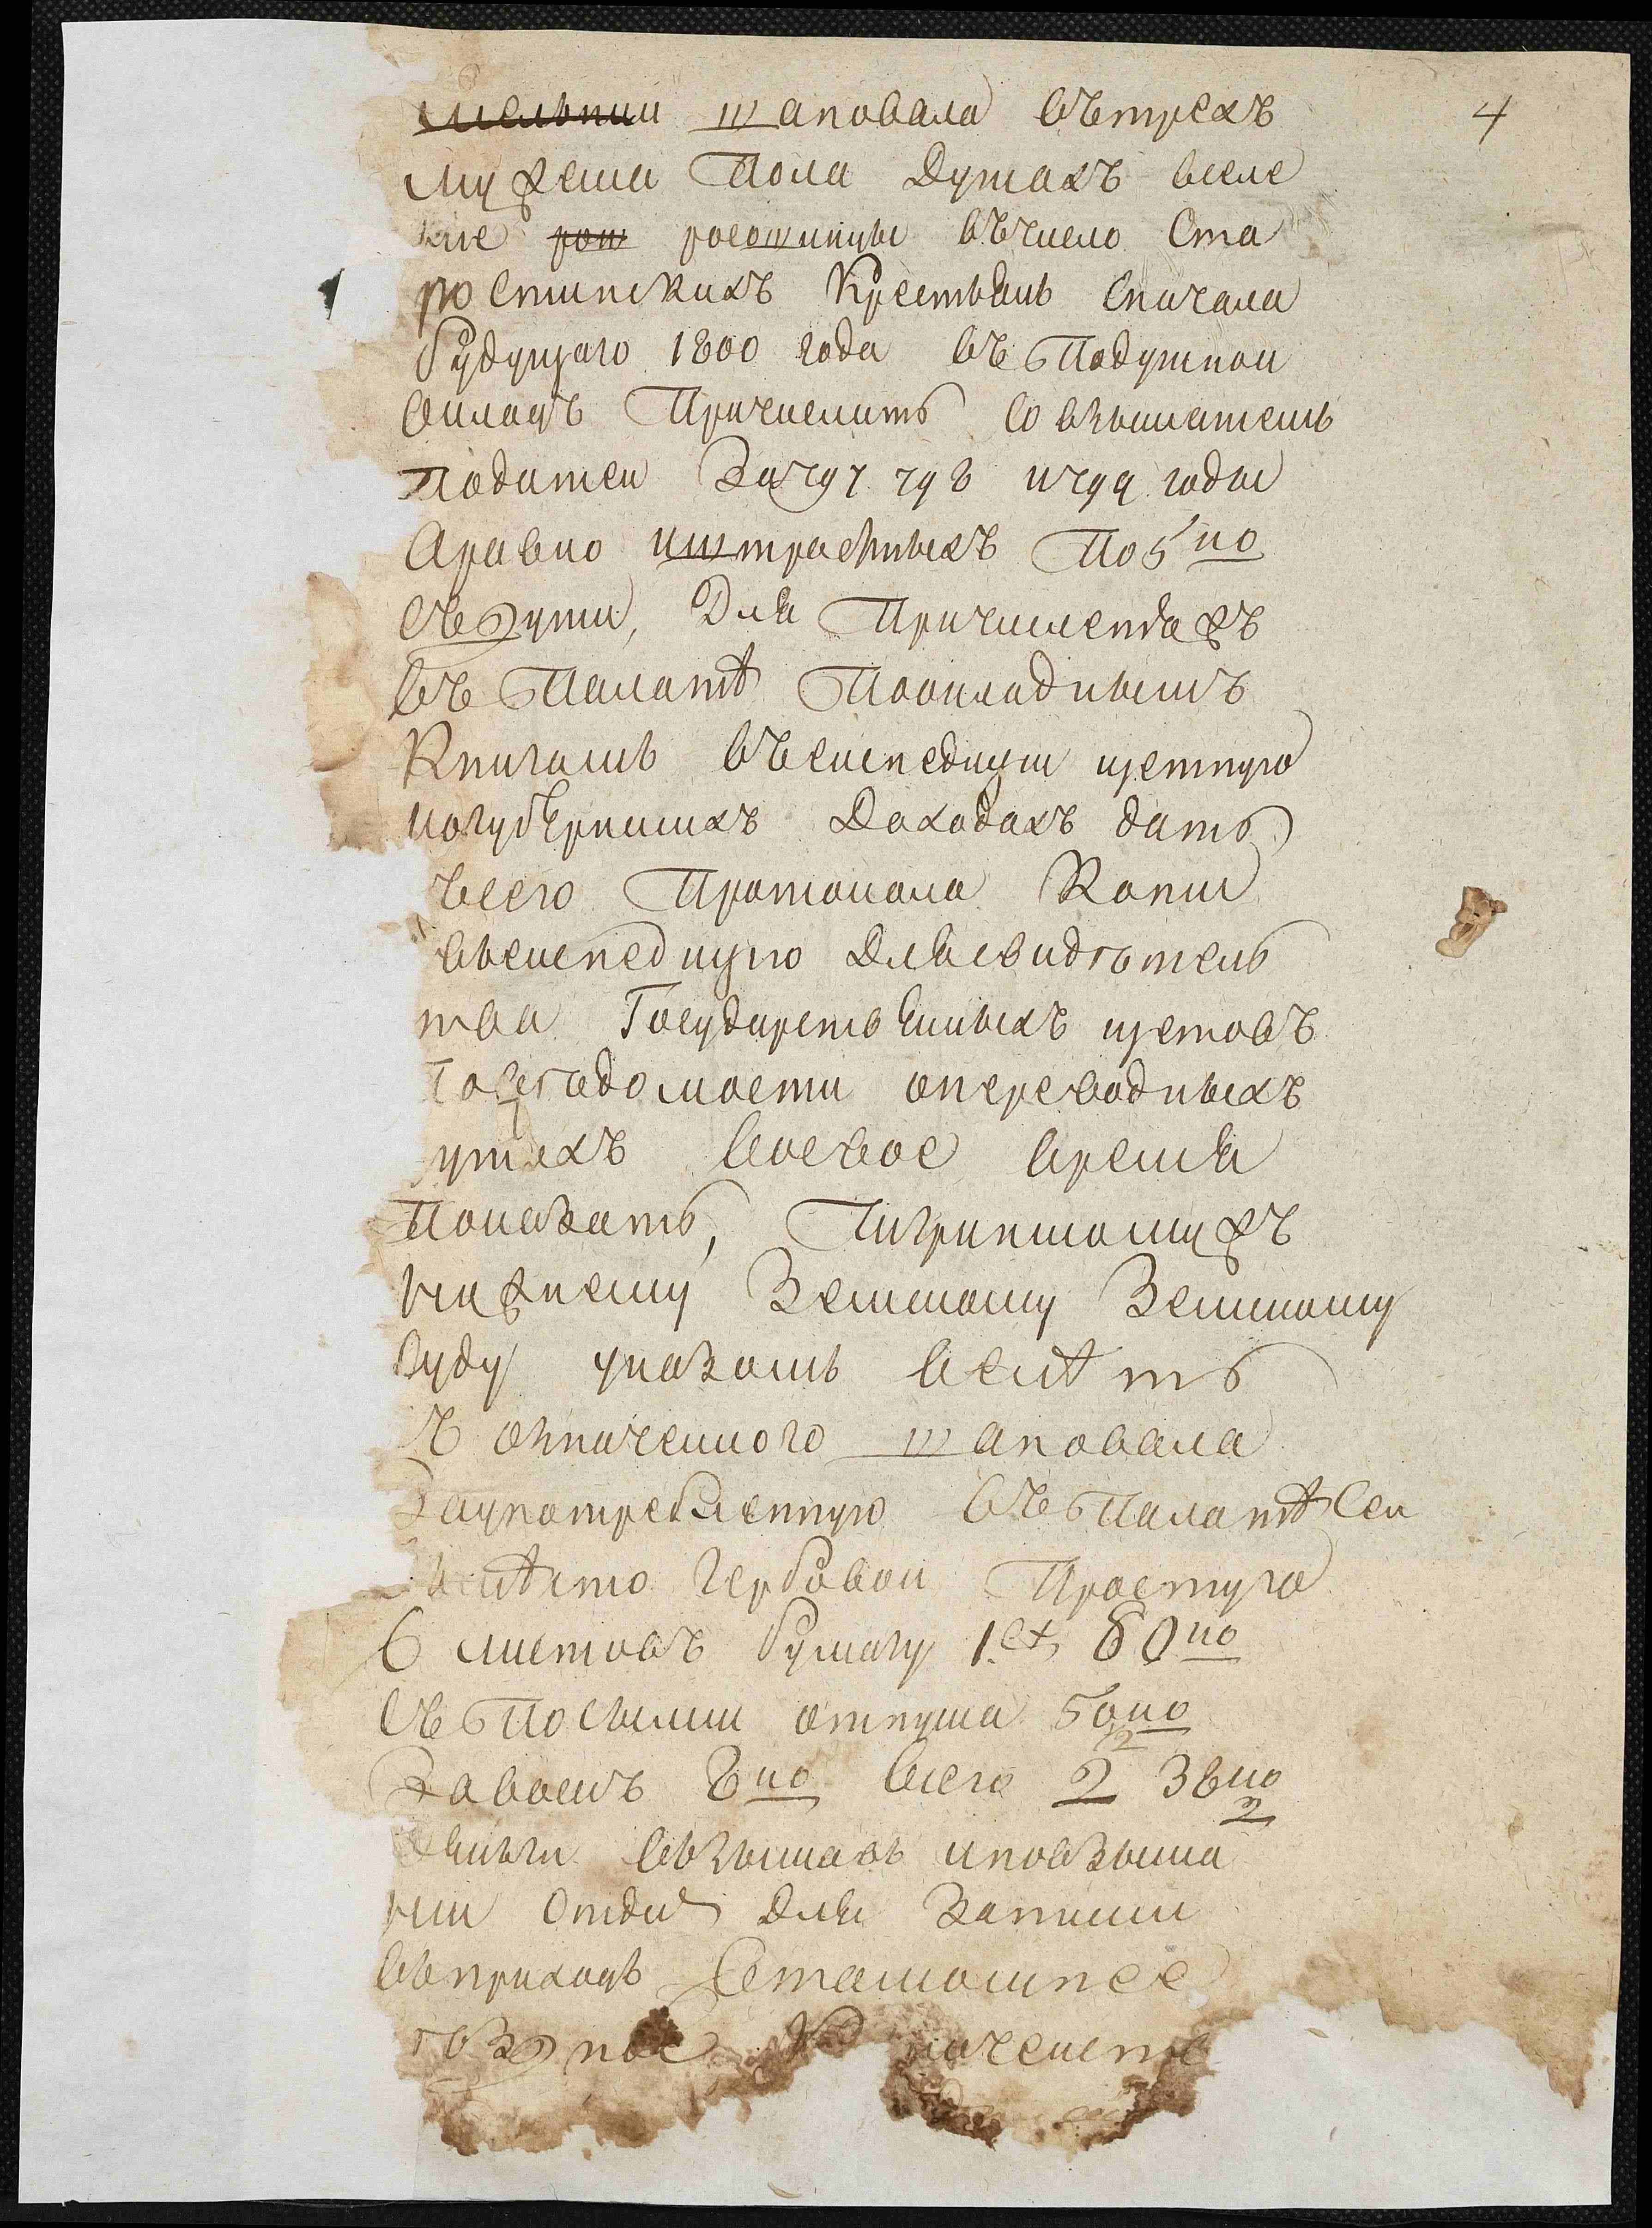 4
шаповала вътрехъ
мужеска Пола Душахъ вселе
ние рош росошинцы въчисло Ста
ростинскихъ Крестьянъ сначала
будущаго 1800 года въ Подушной
окладъ Причислить со взысканиемъ
Податей За 797 798 и 799 годы
Аравно иштрафныхъ По 5 ко
съдуши, Для Причисленияжъ
въ Палатѣ Поокладнымъ
Книгамъ въекспедицiи щетную
иогубернскихъ Доходахъ дать
Ссего Протокола Копии
въекспедицию Длясвидѣтель
тва Государственныхъ щетовъ
Ивѣдомости опереводныхъ
ушахъ восвое время
Показать, Пирятинскомужъ
нижнему Земскому Земскому
суду указомъ велѣть
съ означенного шаповала
Заупотребленную въ Палатѣ Сен
гербовой Простую
6 листовъ бумагу 80 ко
съ Посылки отпуска 50 ко
Завосмъ 8 ко всего 2 38 ко
Деньги взыскавъ иповзыска
нии Отдать Для Записки
въприходъ втамошнее
казначейство